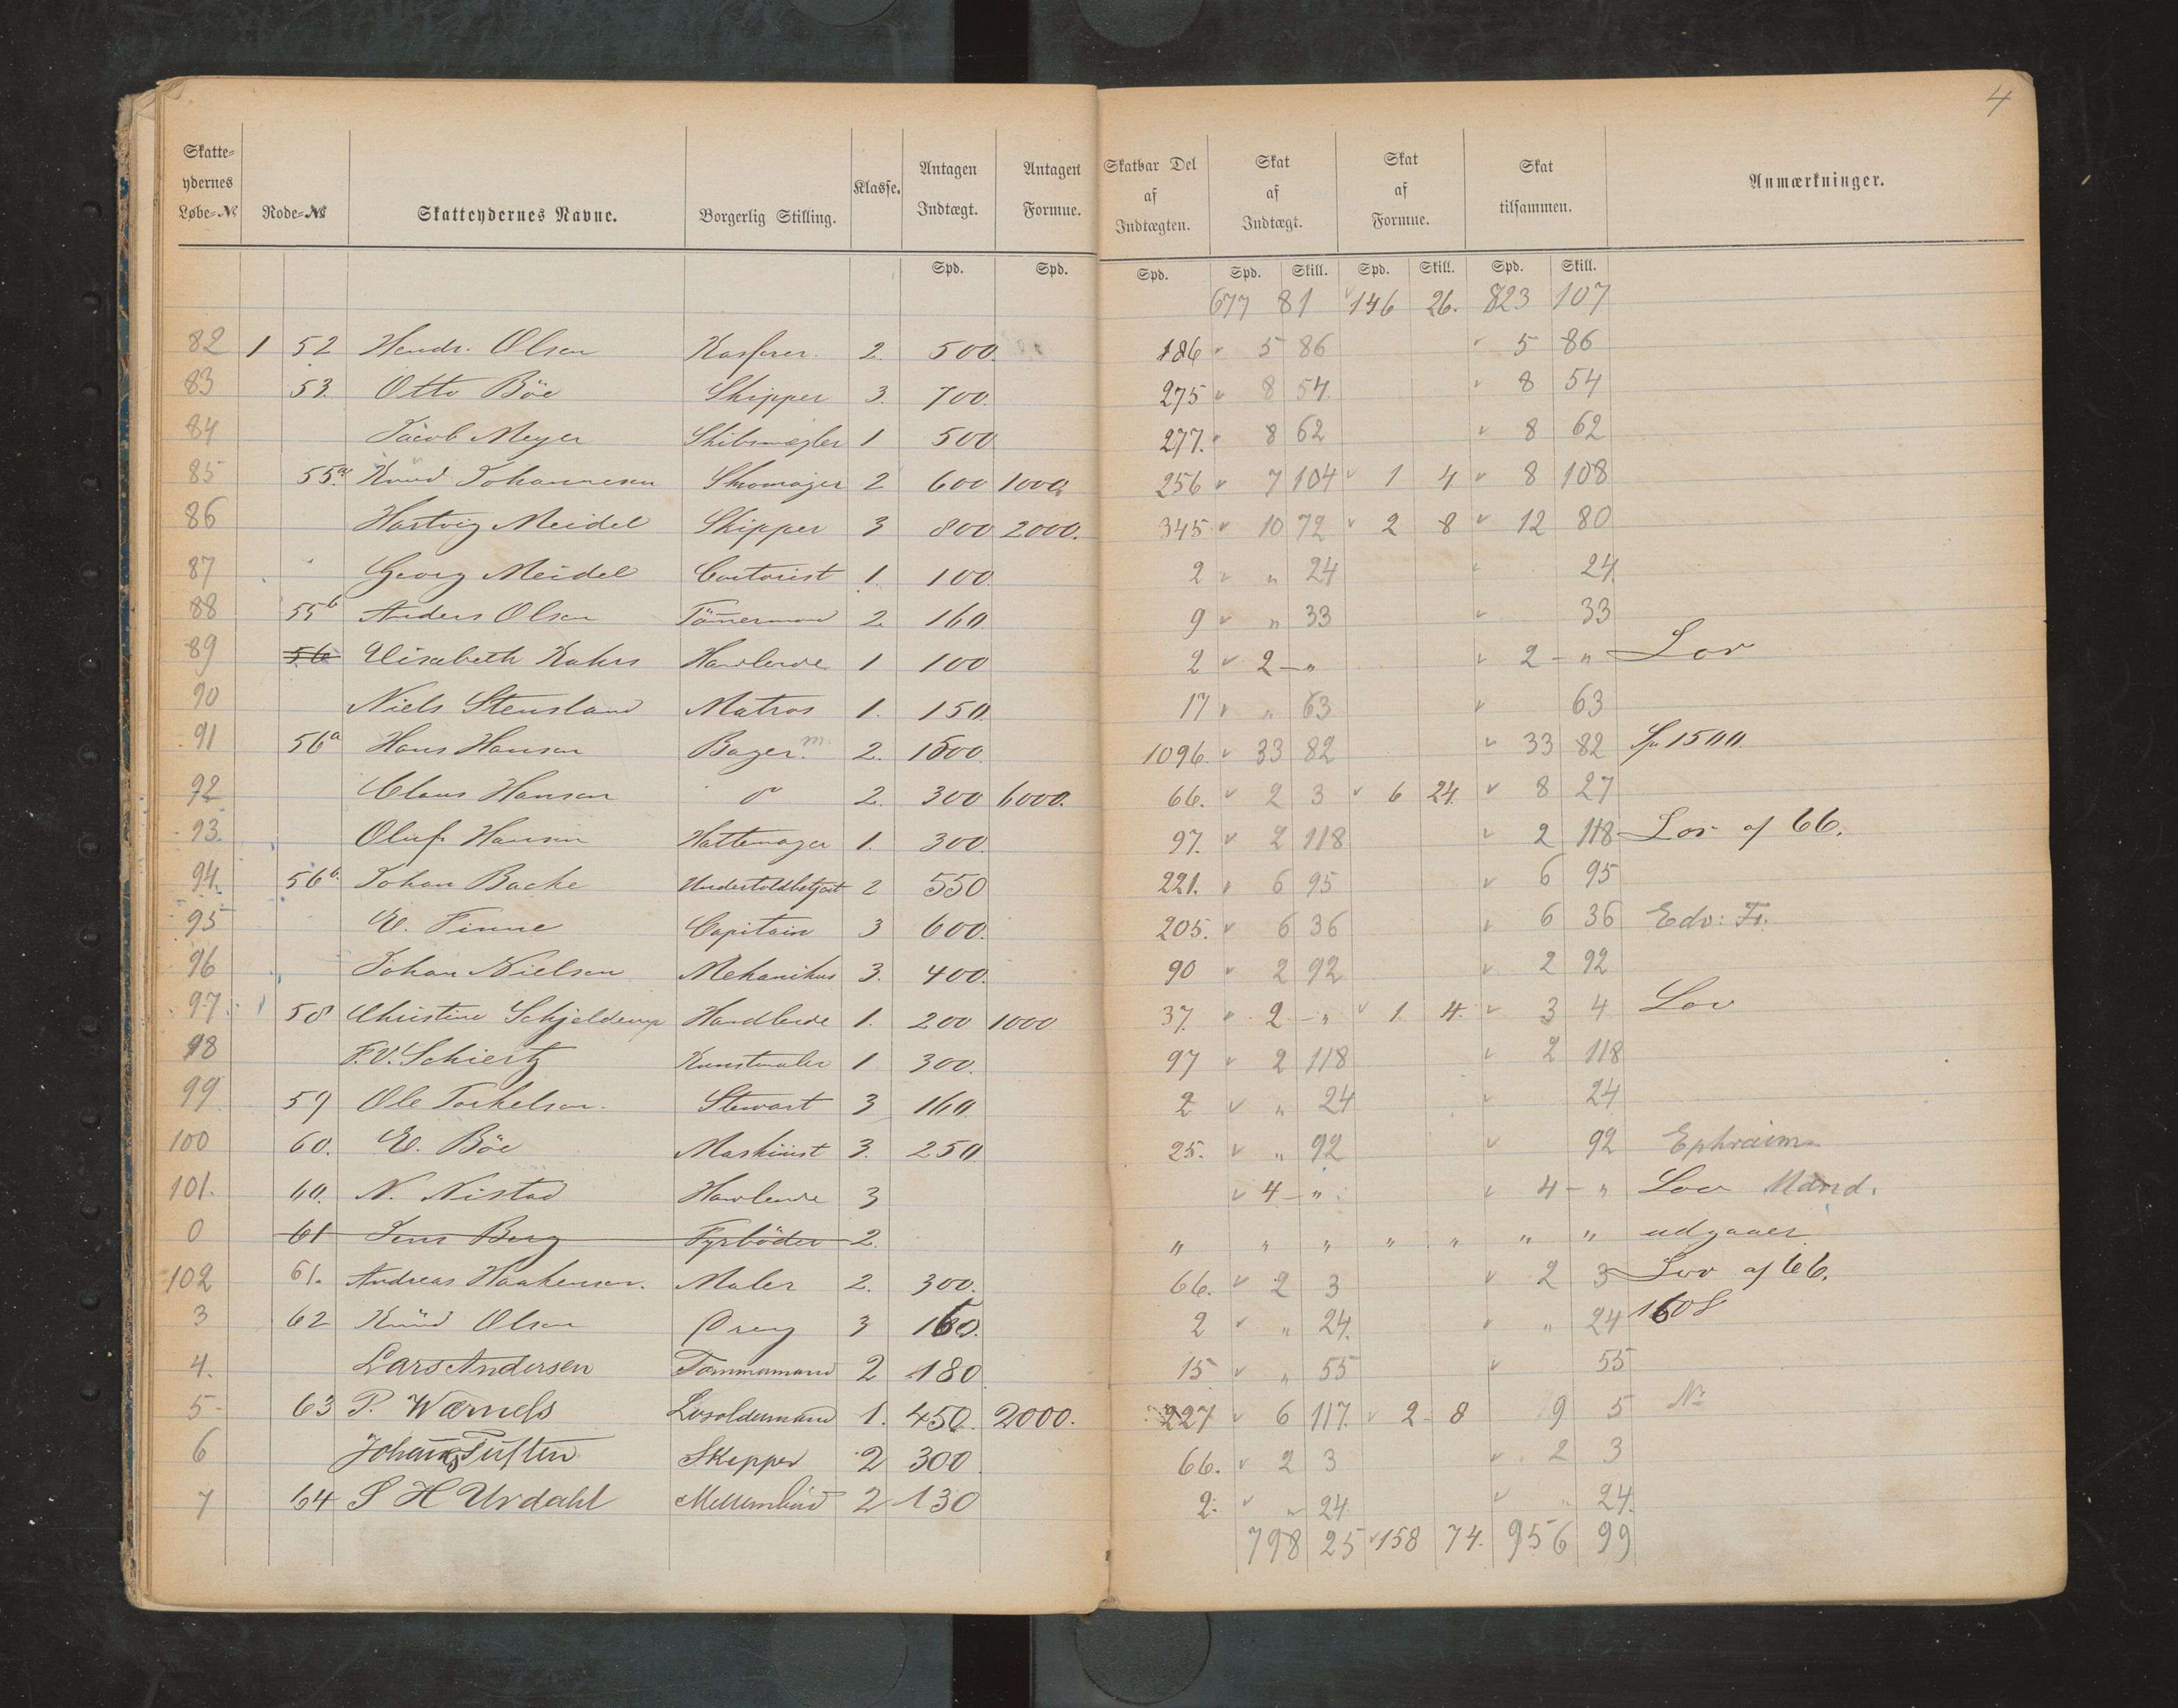 4
Skatteydernes Løbe-№ Rode-№ Skatteydernes Navne. Borgerlig Stilling. Klasse. Antagen Indtægt. Antagen Formue. Skatbar Del af Indtægten. Skat af Indtægt. Skat af Formue. Skat tilsammen. Anmærkninger.
Spd. Spd. Spd. Spd. Skill. Spd. Skill. Spd. Skill.
677 81 146 26. 823 107
82 1 52 Hendr. Olsen Kasserer. 2. 500. 186 5 86 5 86
83 53. Otto Böe Skipper 3. 700. 275 8 54. 8 54
84 Jacob Meyer Skibsmægler 1 500 277. 8 62 8 62
85 55.a Knud Johannesen Skomager 2 600 1000 256 7 104 1 4 8 108
86 Hartvig Meidel Skipper 3 800 2000. 345 10 72 2 8 12 80
87 Georg Meidel Contorist 1. 100. 2 " 24 24
88 55b Anders Olsen Tömermand 2. 160. 9 " 33 33
89 56 Elisabeth Handlende 1 100 2 2 - " 2 - " Lov
90 Niels Stensland Matros 1. 150. 17 " 63 63
91 56a Hans Hansen Bager. m. 2. 1500. 1096. 33 82 33 82 1500.
92 Claus Hansen do 2. 300 6000. 66. 2 3 6 24. 8 27
93. Oluf Hansen Hattemager 1. 300. 97. 2 118 2 118 Lov af 66.
94. 56b. Johan Backe Undertoldbetjent 2 550 221. 6 95 6 95
95 E. Finne Capitain 3 600. 205. 6 36 6 36 Edv: Fr.
96 Johan Nielsen Mekanikus 3. 400. 90 2 92 2 92
97. 58 Christine Schjelderup Handlende 1. 200 1000 37. 2 - " 1. 4. 3 4 Lov
98 F.V. Schiertz Kunstmaler 1 300. 97 2 118 2 118
99 59 Ole Torkelsen. Stewart 3 160. 2 " 24 24
100 60. E. Böe Maskinist 3. 250. 25. " 92 92 Ephraim
101. 60. N. Nistad Handlende 3 4 - " 4 - " Lov Mand.
0 61 Jens Berg Fyrböder 2. " " " " " " " udgaaer
102 61. Andreas Haakensen. Maler 2. 300. 66. 2 3 2 3 Lov af 66.
3 62 Knud Olsen 3 160. 2 " 24. " 24 160
4. Lars Andersen Tømmermand 2 180 15 " 55 55
5 63 P. Wærnels Losoldermand 1. 450. 2000. 227 6 117. 2 8 9 5 №
6 Johans Tuften Skipper 2 300 66. 2 3 2 3
7 64 S H Urdahl 2 130 2. " 24. " 24.
798 25 158 74. 956 99